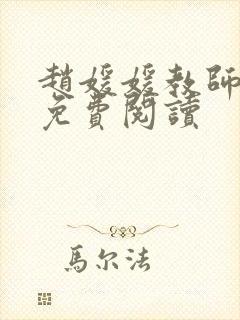 趙媛媛教師
免費閱讀
馬尔法